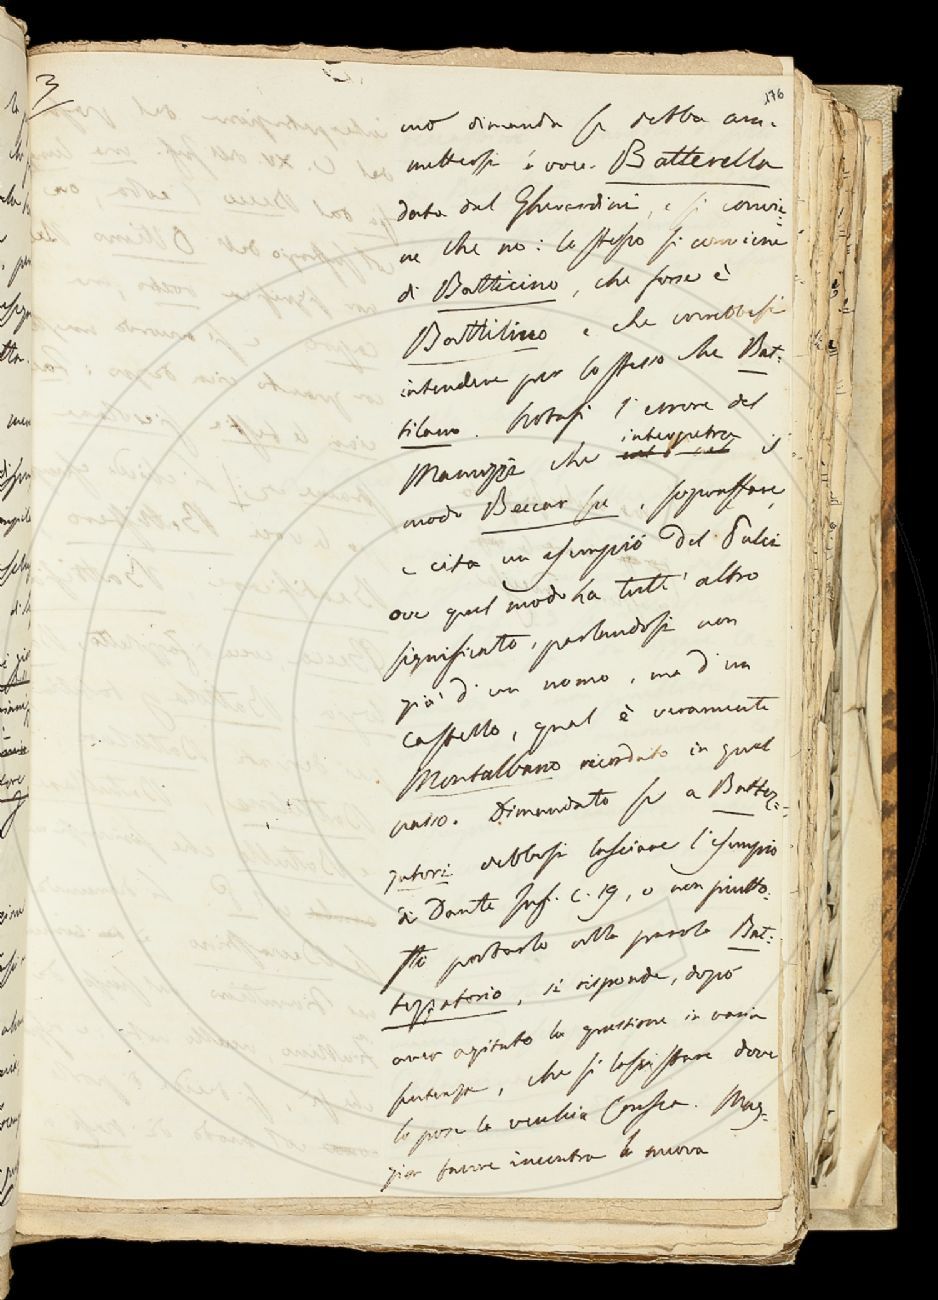 3
176
mo dimanda se debba am-
mettersi la voce Batterella
data dal Gherardini, e si convie-
ne che no: lo stesso si conviene
di Batticino, che forse è
Battilino e che vorrebbesi
intendere per lo stesso che Bat-
tilano. Notasi l'errore del
Manuzzi che interpetra il
modo Beccar su, sopraffare,
e cita un esempio del Pulci
ove quel modo ha tutt'altro
significato, parlandosi non
già d'un uomo, ma d'un
castello, qual è veramente
Montalbano ricordato in quel
passo. Dimandato se a Battez-
zatori debbasi lasciare l'esempio
di Dante Inf. C. 19, o non piutto-
sto portarlo alla parola Bat-
tezzatorio, si risponde, dopo
aver agitato la questione in varia
sentenza, che si lasci stare dove
lo pose la vecchia Crusca. Mag-
gior favore incontra la nuova